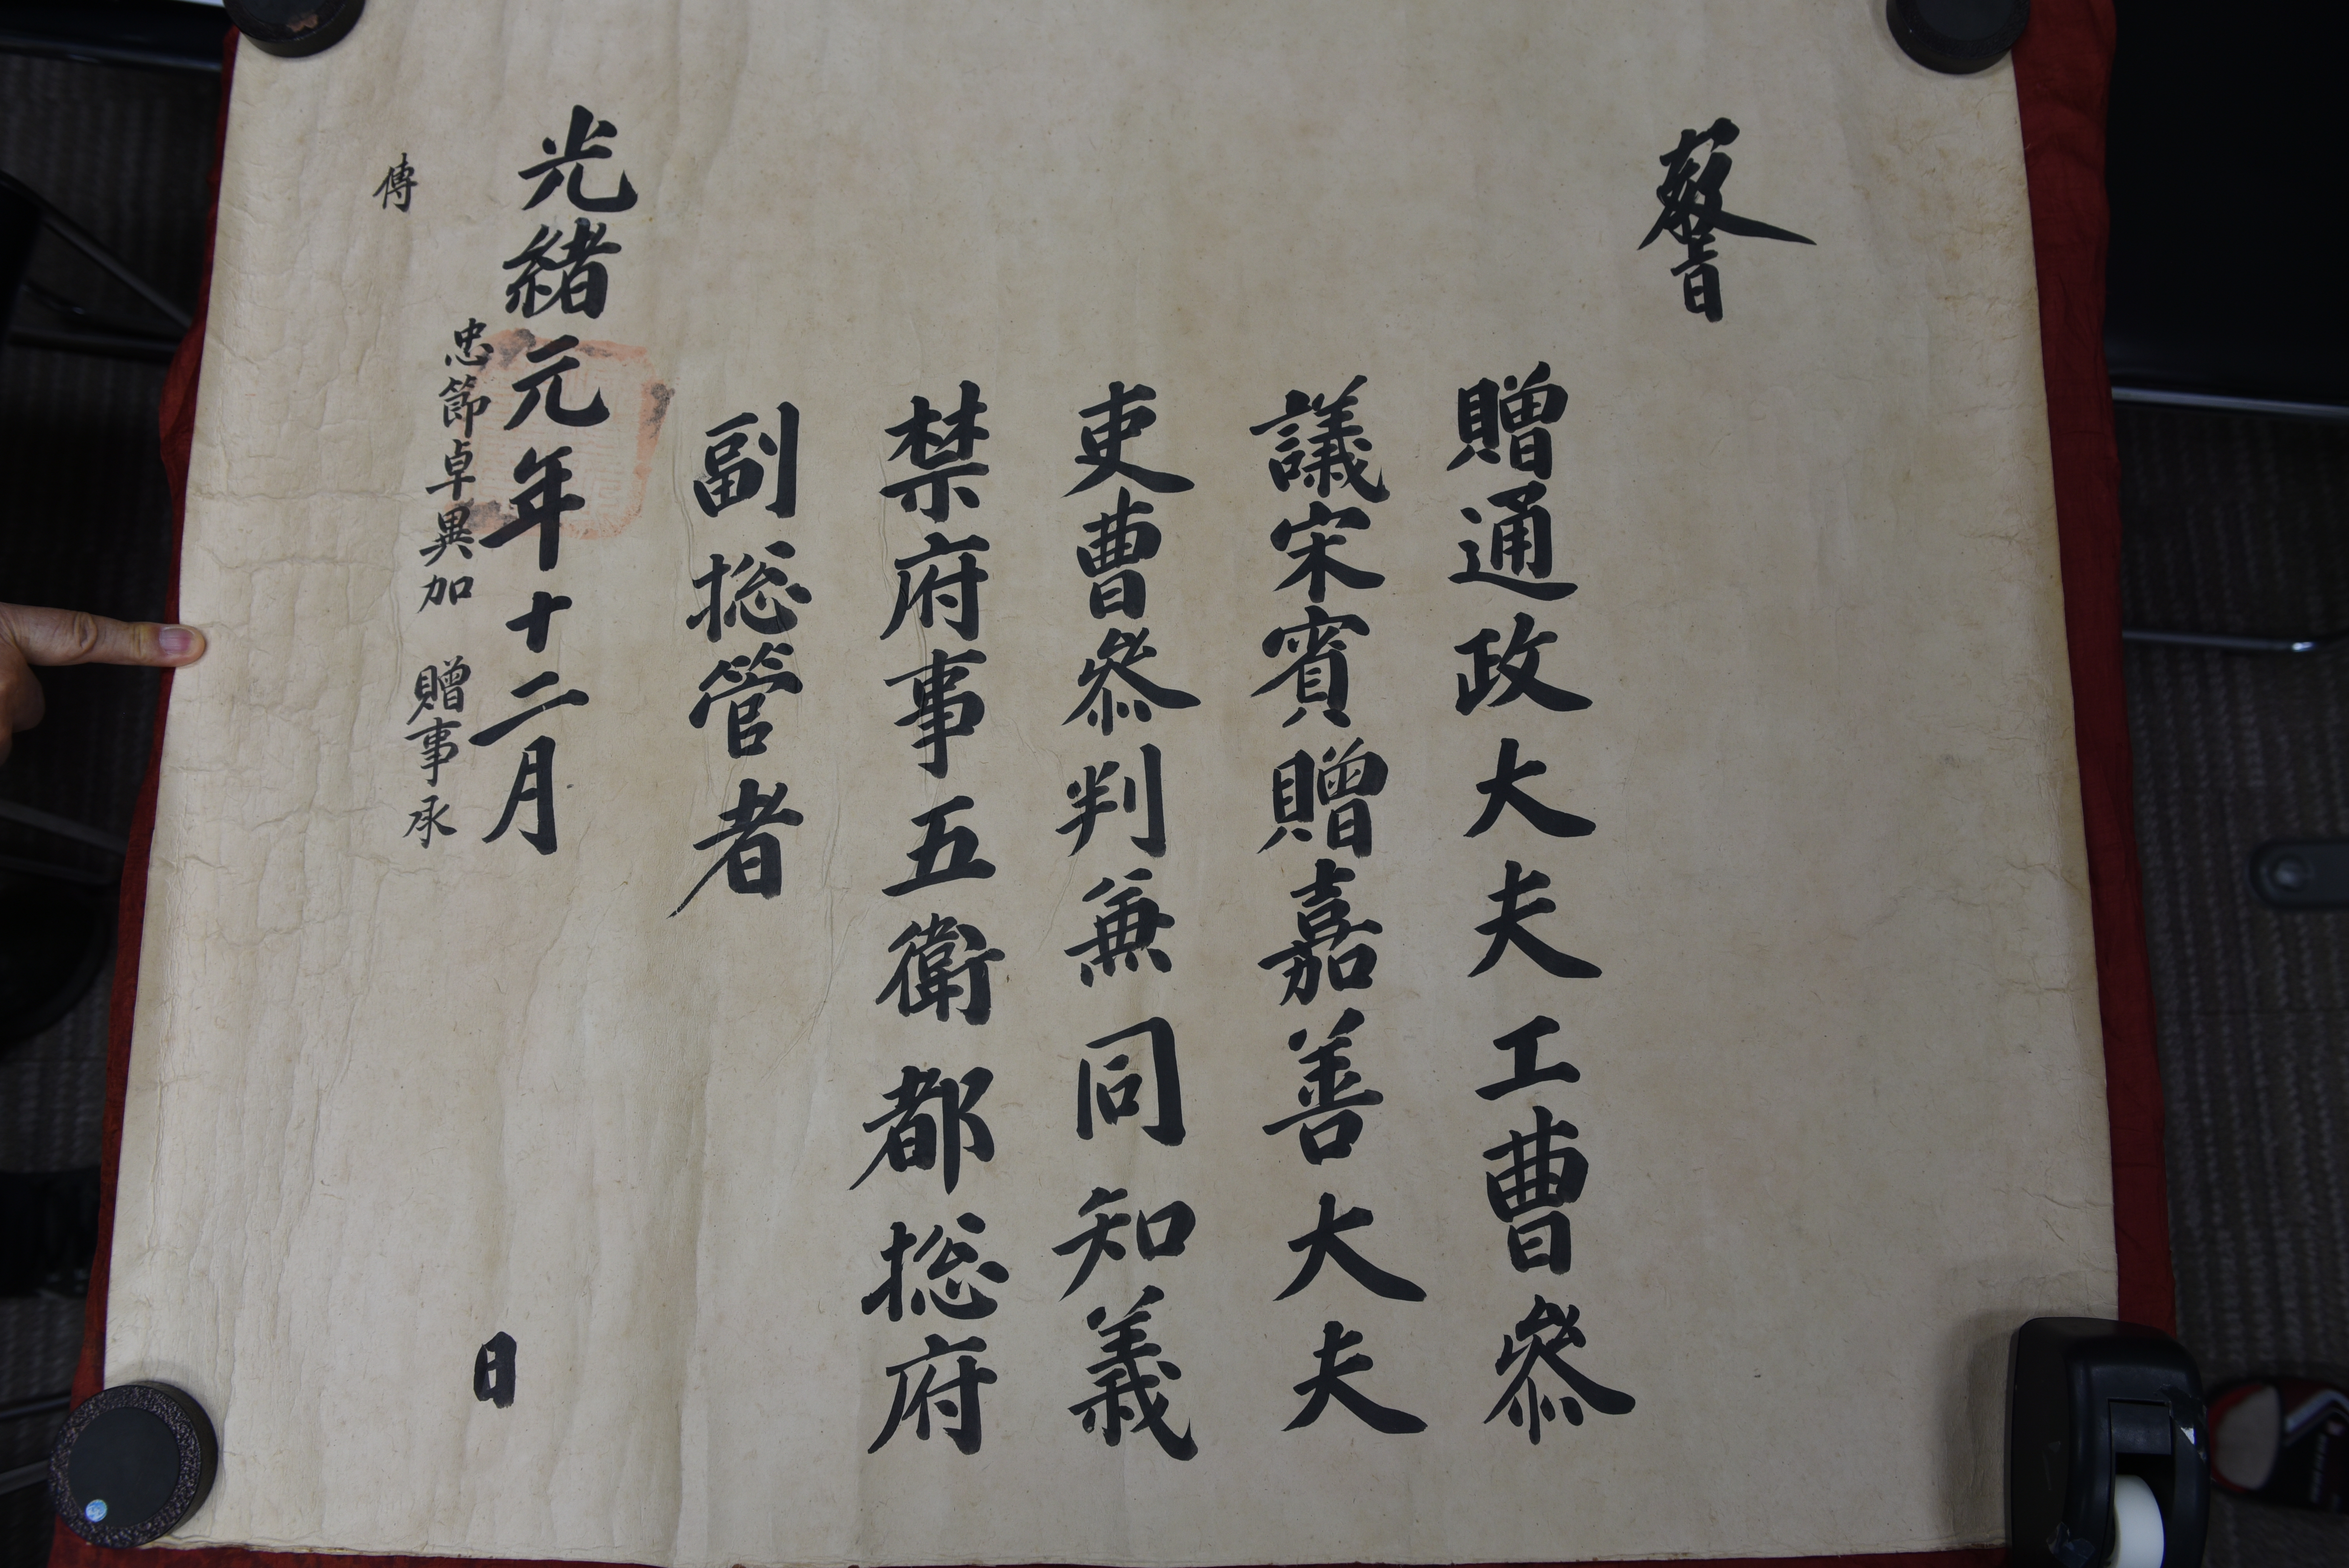 敎旨
贈通政大夫工曹參
議宋賓贈嘉善大夫
吏曹參判兼同知義
禁府事五衛都摠府
副摠管者
光緖元年十二月 日
忠節卓異加 贈事承
傳